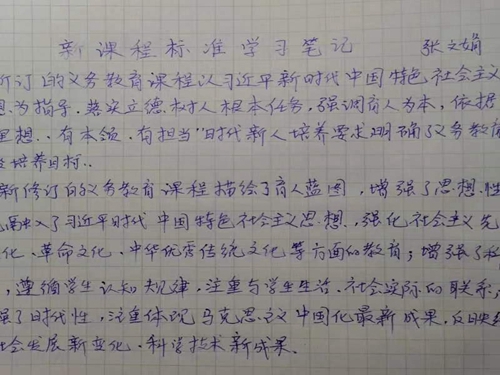 新课程标准学习笔记 张文娟
新订的义务教育课程以习近平新时代中国特色社会主义
思想为指导.落实立德树人根本任务,强调育人为本,依据
理想..有本领.有担当"时代新人培养要求明确了义务教育
培养目标..
新修订的义务教育课程描绘了育人蓝图,增强了思想性
融入了习近平时代中国特色社会主义思想.强化社会主义先
化、革命文化、中华优秀传统文化等方面的教育;增强了科
,遵循学生认知规律,注重与学生生活、社会实际的联系,
强了时代性,注重体现马克思主义中国化最新成果,反映经
社会发展新变化.科学技术新成果.